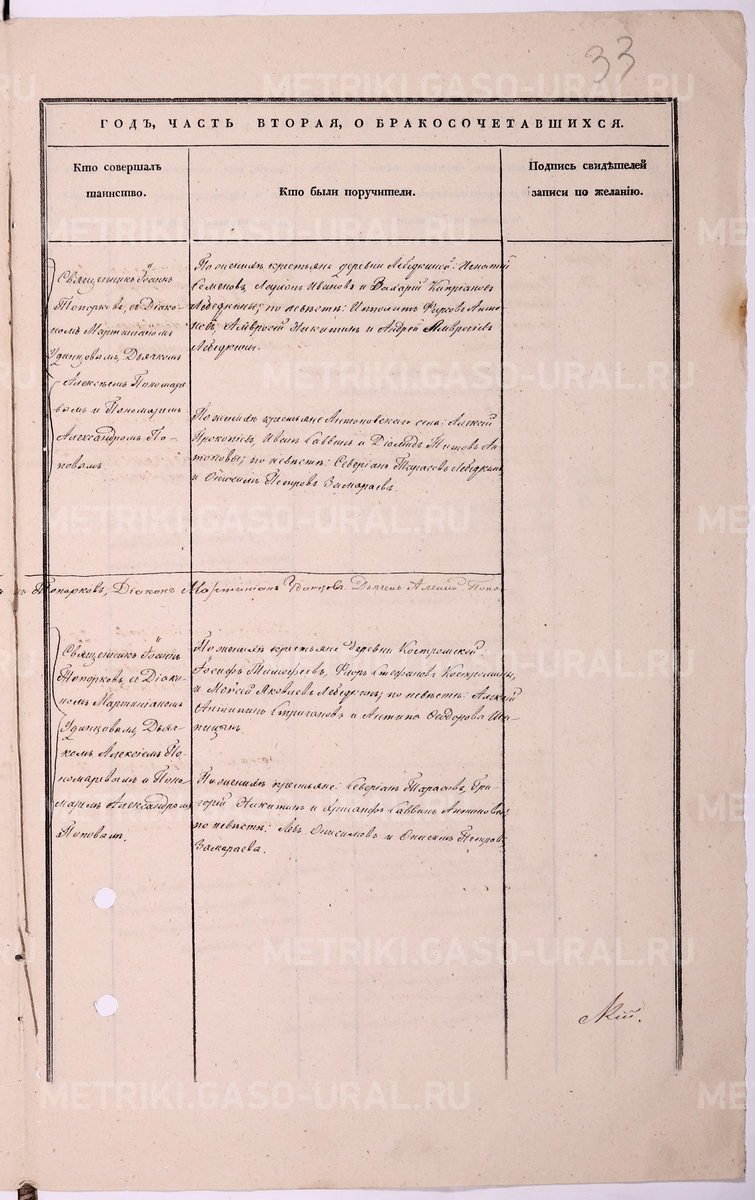 33
ГОДЪ, ЧАСТЬ ВТОРАЯ, О БРАКОСОЧЕТАВШИХСЯ.
Кто совершалъ
таинство.
Кто были поручители.
Подпись свидѣтелей
записи по желанію.
Священникъ Іоаннъ
Топорковъ, съ Діако-
номъ Мартиніаномъ
Удинцовымъ, Дьячкомъ
Алексѣемъ Пономаре-
вымъ и Пономаремъ
Александромъ По-
повымъ
По женихѣ крестьяне деревни Лебедкиной: Игнатій
Семеновъ, Иванъ и Захарій Кипріановъ
Лебедкины; по невѣстѣ: Ипполитъ Фирсовъ
Амвросій Никитинъ и Андрей Амвросіевъ
Лебедкины.
По женихѣ крестьяне Антоновскаго села: Алексій
Прокопіевъ, Иванъ Саввинъ и Діомидъ Титовъ Ан-
тоновы; по невѣстѣ: Северіанъ Тарасовъ Лебедкинъ
и Онисимъ Петровъ Замараевъ.
Топорковъ, Діаконъ Мартиніанъ Удинцовъ Дьячекъ Алексій Поно-
Священникъ Іоаннъ
Топорковъ, съ Діако-
номъ Мартиніаномъ
Удинцовымъ, Дьяч-
комъ Алексіемъ По-
номаревымъ и Поно-
маремъ Александромъ
Поповымъ.
По женихѣ крестьяне деревни Костромской
Іосифъ Тимофеевъ, Флоръ Стефановъ Костромины,
и Моисей Яковлевъ Лебедкинъ; по невѣстѣ: Алексій
Антипинъ Стригановъ и Антипа Ѳеодоровъ Ша-
пицынъ
По женихѣ крестьяне: Северіанъ Тарасовъ, Гри-
горій Никитинъ и Саввинъ Антоновы;
по невѣстѣ: Левъ Онисимовъ и Онисимъ Петровъ
Замараевы.
METRIKI.GASO-URAL.RU